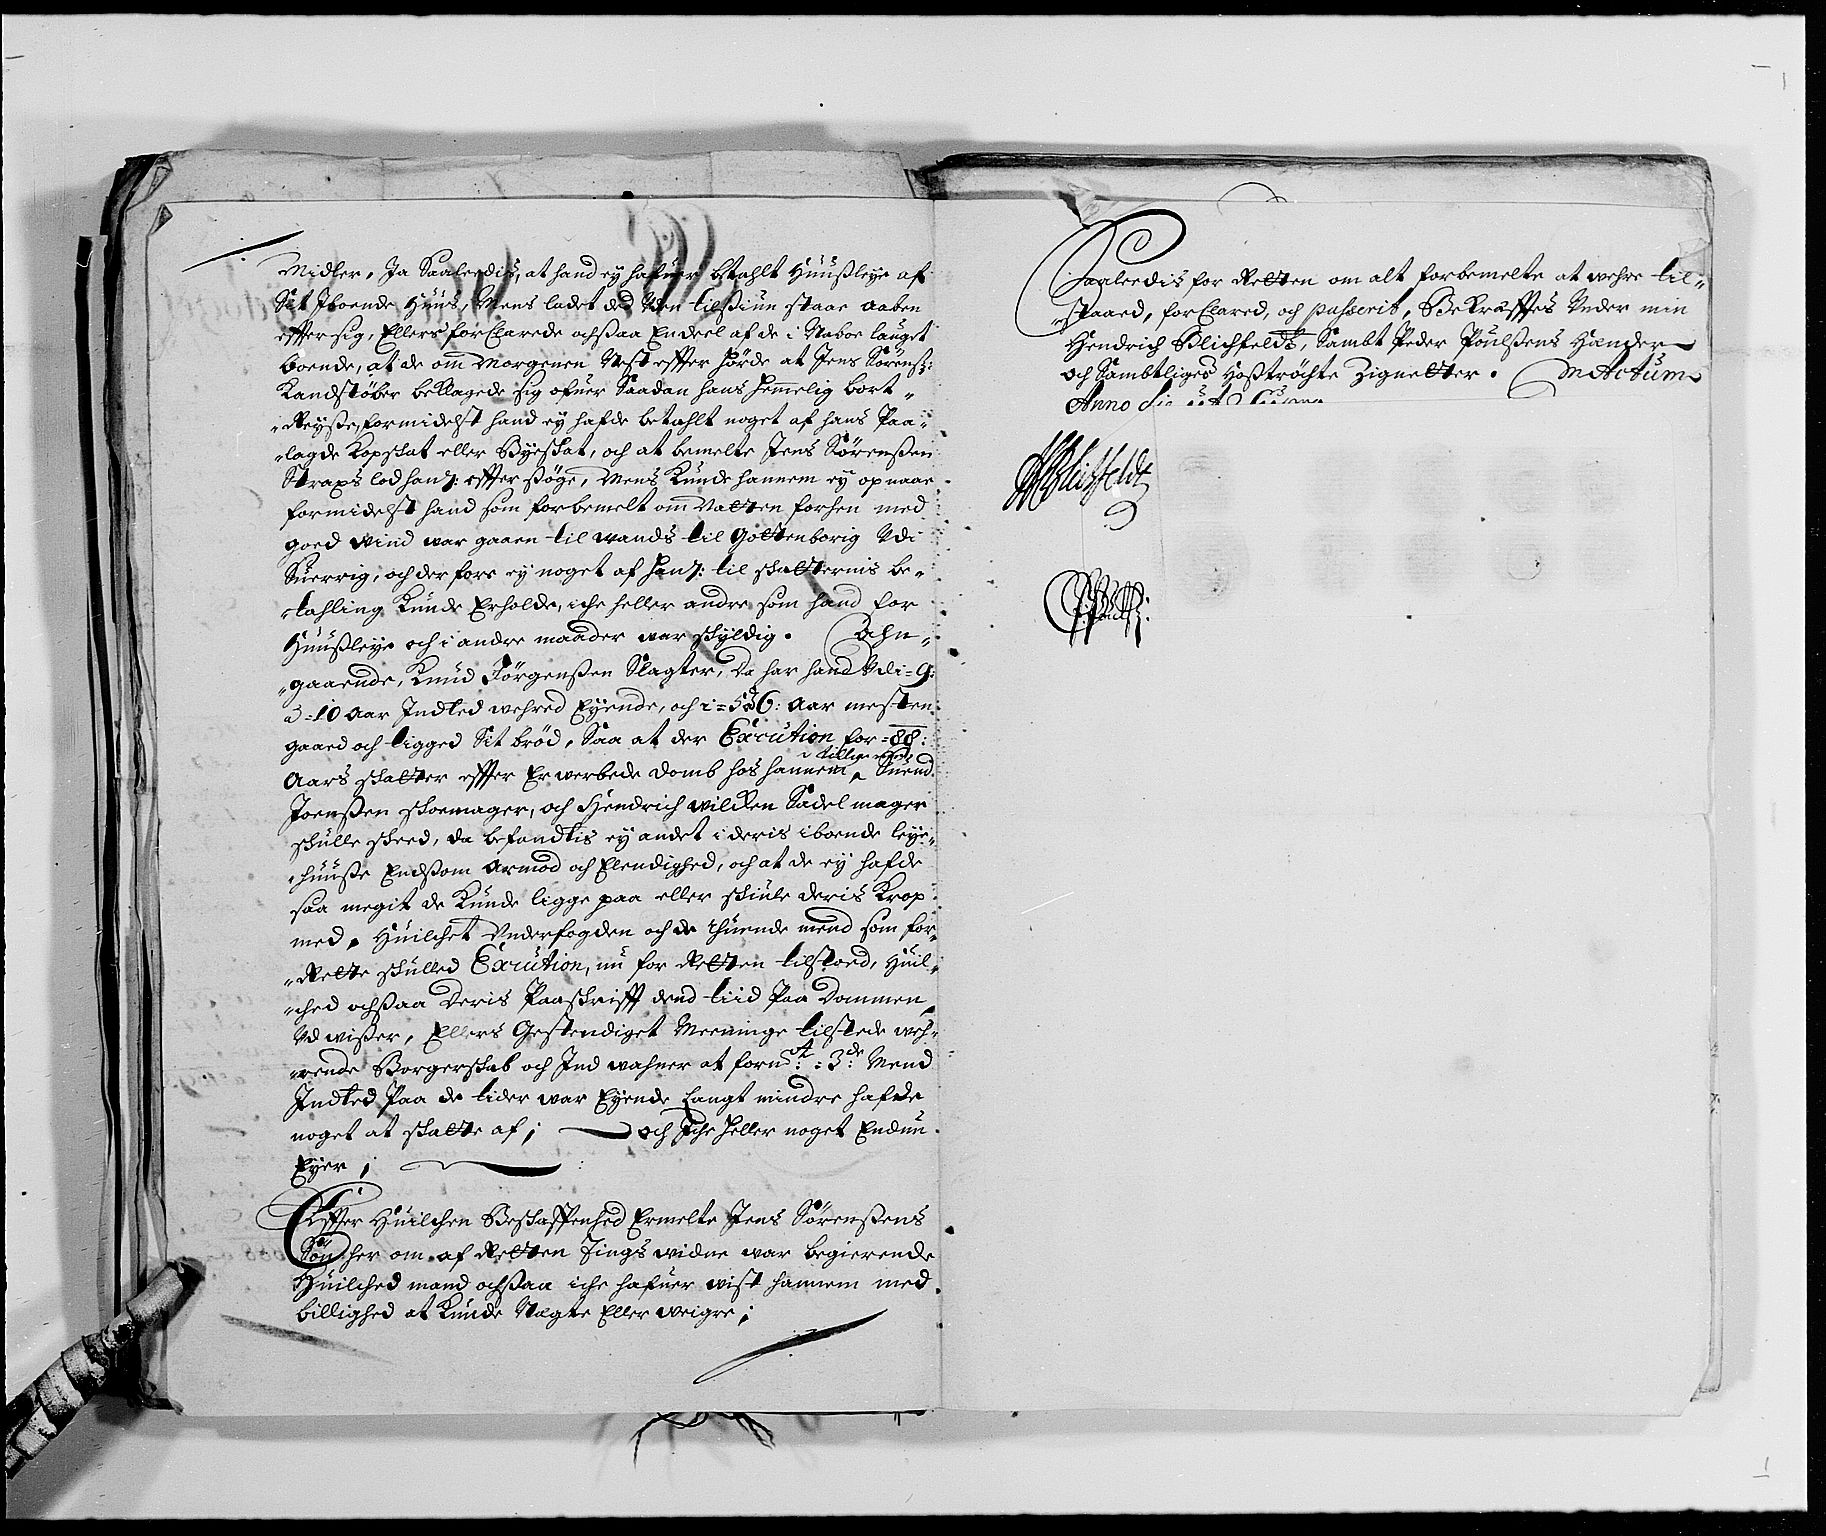 Midler, Ja Saaledis, at hand ey hafuer betahlt Huußleye af
Sit Iboende Huus, Mens ladet ded uden tilßiun staae aaben
effter sig, Ellers forClarede ochßaa Endeel af de i Naboe lauget
boende, at de om Morgenen Nest effter hørde at Jens Sørenß:
Kandstøber beklagede sig ofuer Saadan hans hemelig bort-
Reyße, formidelst hand ey hafde betahlt noget af hans Paa-
lagde Kopskat eller Byeskat, och at bemelte Jens Sørenßen
Straxs lod hanẜ: effter ßøge, Mens Kunde hannem ey opnaae
formidelst hand som forbemelt om Natten forhen med
goed Wind war gaaen til wands til Gottenborig Vdi
Suerrig, och derfore ey noget af hanẜ: til skatternis be-
tahling Kunde Erholde, iche heller andre som hand for
Huußleye och i andre maader war skyldig. Ahn-
gaaende, Knud Jørgenßen Slagter, Da har hand Vdi 9:
à 10 Aar Indted wehred Eyende, och i 5 à 6: Aar mesten
gaaed och tigged Sit brød, Saa at der Execution for 88:
Aars skatter effter Erwerbede Domb hos hannem tillige med Suend
Joenßen skoemager, och Hendrich Wilcken Sadelmager
skulle skeed, da befandtis ey andet i deris iboende leye-
huuße Endßom Armod och Elendighed, och at de ey hafde
saa megit de Kunde ligge paa eller skiule deris Krop
med, Huilchet Underfogden och de thuende mend som for-
Rette skulled Execution, nu for Retten tilstoed, Huil-
ched ochßaa Deris Paaskrifft dend tiid Paa Dommen
Vdwißer, Ellers Gestendiget Meeninge tilstede weh-
rende Borgerskab och Indwahner at fornt: 3de: Mend
Indted Paa de tider war Eyende Langt mindre hafde
noget at skatte af; och Iche heller noget Endnu
Eyer;
Effter Huilchen Beskaffenhed Ermelte Jens Sørenßens
Søn her om af Retten Tingswidne war begierende
Huilched mand ochßaa iche hafuer wist hannem med
billighed at Kunde Negte Eller weigre;
Saaledis for Retten om alt forbemelte at wehre til-
staaed, forClared, och passerit, Bekræfftes Under min
Hendrich Blichfeldts, Sambt Peder Poulßens Hænder
och Sambtliges hoßtrøchte Zignetter. Actum
Anno die ut Supra
HBlichfeldt